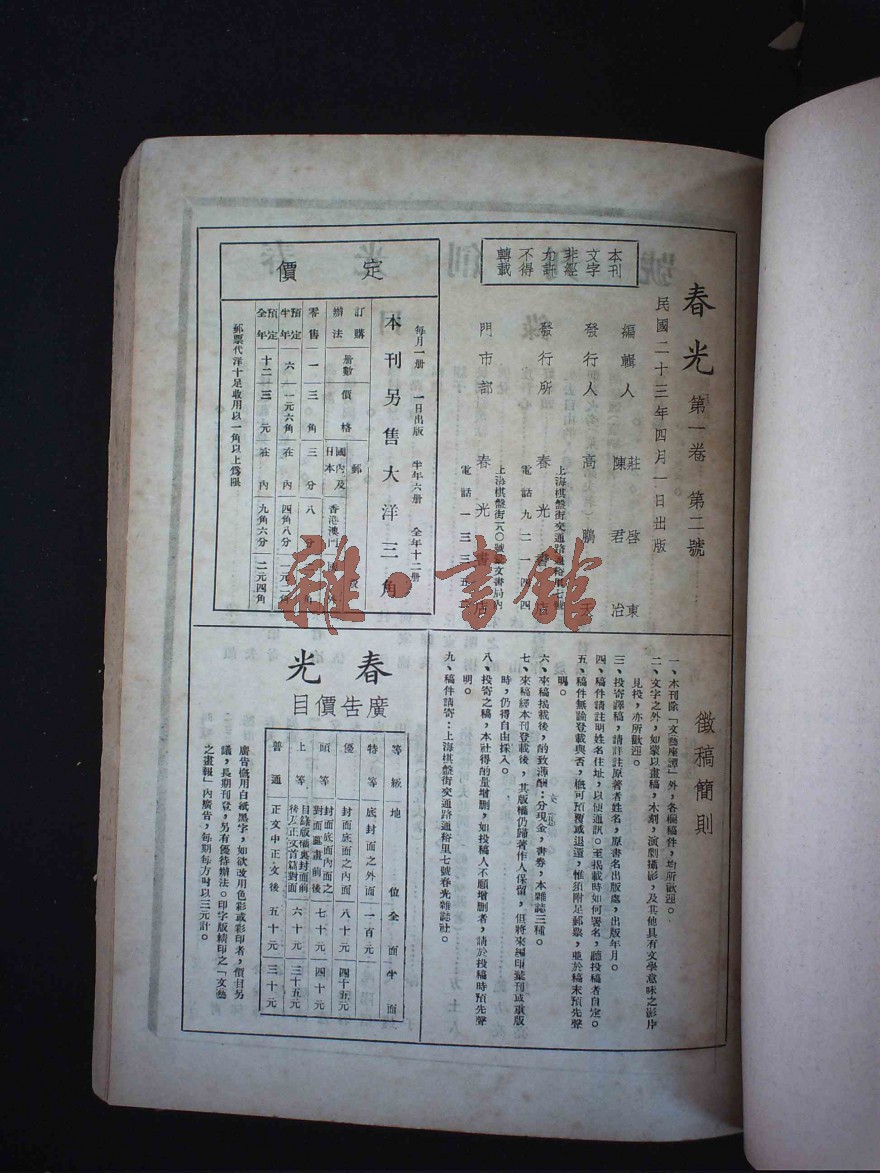 春光 第一卷 第二號
民國二十三年四月一日出版
編輯人 莊啓東
陳君冶
發行人 高鵬天
上海棋盤街交通路通裕里七號
發行所 春光書店
電話九二一四四
上海棋盤街
門市部 春光書店
電話一三三五
本刊
文字
非經
允許
不得
轉載
定價
每月一册 一日出版 半年六册 全年十二册
本刊另售大洋三角
訂購辦法 册數 價格 郵費
國內及日本 香港澳門 國外
零售 一 三角 三分 八分
預定半年 六 一元六角 在內 四角八分 一元二角
預定全年 十二 三元 在內 九角六分 二元四角
郵票代洋十足收用以一角以上爲限
徵稿簡則
一、本刊除「文藝座譚」外，各欄稿件，均所歡迎。
二、文字之外，如蒙以畫稿，木刻，演劇攝影，及其他具有文學意味之影片
見投，亦所歡迎。
三、投寄譯稿，請註註原著者姓名，原書名出版處，出版年月。
四、稿件請註明姓名住址，以便通訊。至揭載時如何署名，聽投稿者自定。
五、稿件無論登載與否，概可預覆或退還，惟須附足郵票，並於稿末預先聲
明。
六、來稿揭載後，酌致薄酬：分現金，書券，本雜誌三種。
七、來稿經本刊登載後，其版權仍歸著作人保留，但將來編印叢刊或重版
時，仍得自由採入。
八、投寄之稿，本社得酌量增删，如投稿人不願增删者，請於投稿時預先聲
明。
九、稿件請寄：上海棋盤街交通路通裕里七號春光雜誌社。
春光
廣告價目
等級 地位 全面 半面
特等 底封面之外面 一百元
優等 封面底面之內面 八十元 四十五元
頭等 封面底面內面之對面圖畫前後 七十元 四十元
上等 目錄版權裏封面前後及正文首篇對面 六十元 三十五元
普通 正文中正文後 五十元 三十元
廣告概用白紙黑字，如欲改用色彩或彩印者，價目另
議，長期刊登，另有優待辦法。印字版精印之「文藝
之畫報」內廣告，每期每方吋以三元計。
雜·書館